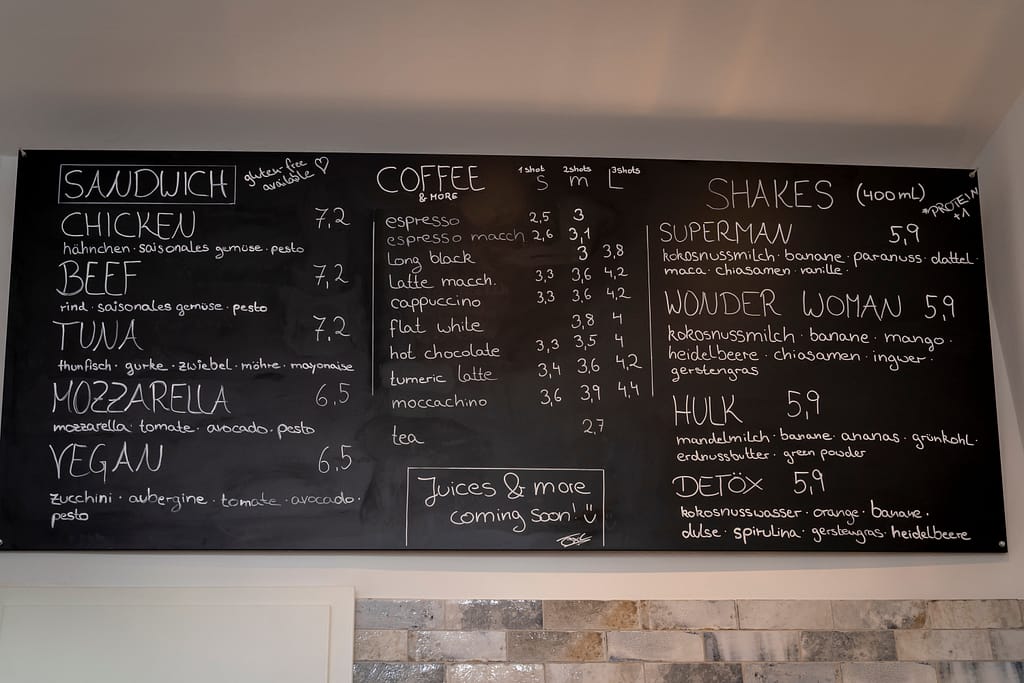 SANDWICH gluten free available ♡
CHICKEN 7,2
hähnchen · saisonales gemüse · pesto
BEEF 7,2
rind · saisonales gemüse · pesto
TUNA 7,2
thunfisch · gurke · zwiebel · möhre · mayonaise
MOZZARELLA 6,5
mozzarella · tomate · avocado · pesto
VEGAN 6,5
zucchini · aubergine · tomate · avocado ·
pesto
COFFEE 1 shot 2 shots 3 shots
& MORE S M L
espresso 2,5 3
espresso macch 2,6 3,1
long black 3 3,8
latte macch. 3,3 3,6 4,2
cappuccino 3,3 3,6 4,2
flat white 3,8 4
hot chocolate 3,3 3,5 4
tumeric latte 3,4 3,6 4,2
moccachino 3,6 3,9 4,4
tea 2,7
Juices & more
coming soon!
SHAKES (400 mL) *PROTEIN +1
SUPERMAN 5,9
kokosnussmilch · banane · paranuss · dattel ·
maca · chiasamen · vanille ·
WONDER WOMAN 5,9
kokosnussmilch · banane · mango ·
heidelbeere · chiasamen · ingwer ·
gerstengras
HULK 5,9
mandelmilch · banane · ananas · grünkohl ·
erdnussbutter · green powder
DETÖX 5,9
kokosnusswasser · orange · banane ·
dulse · spirulina · gerstengras · heidelbeere